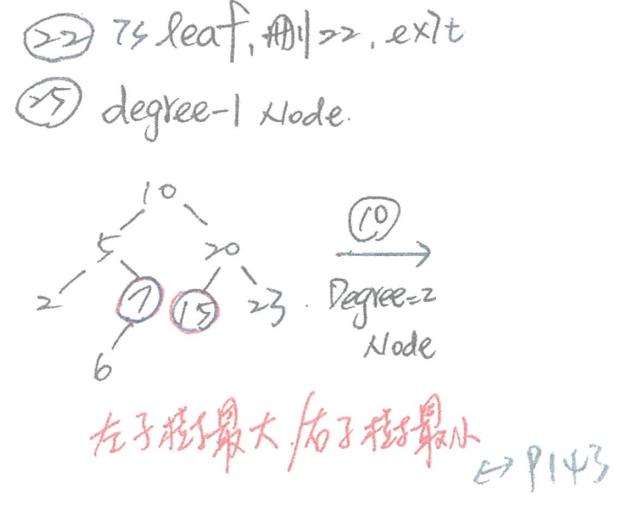 22 is leaf, 刪22, exit
25 degree-1 Node.
10
5 20 10
2 7 15 23 . Degree=2
6 Node
左子樹最大/右子樹最小
↔ P143